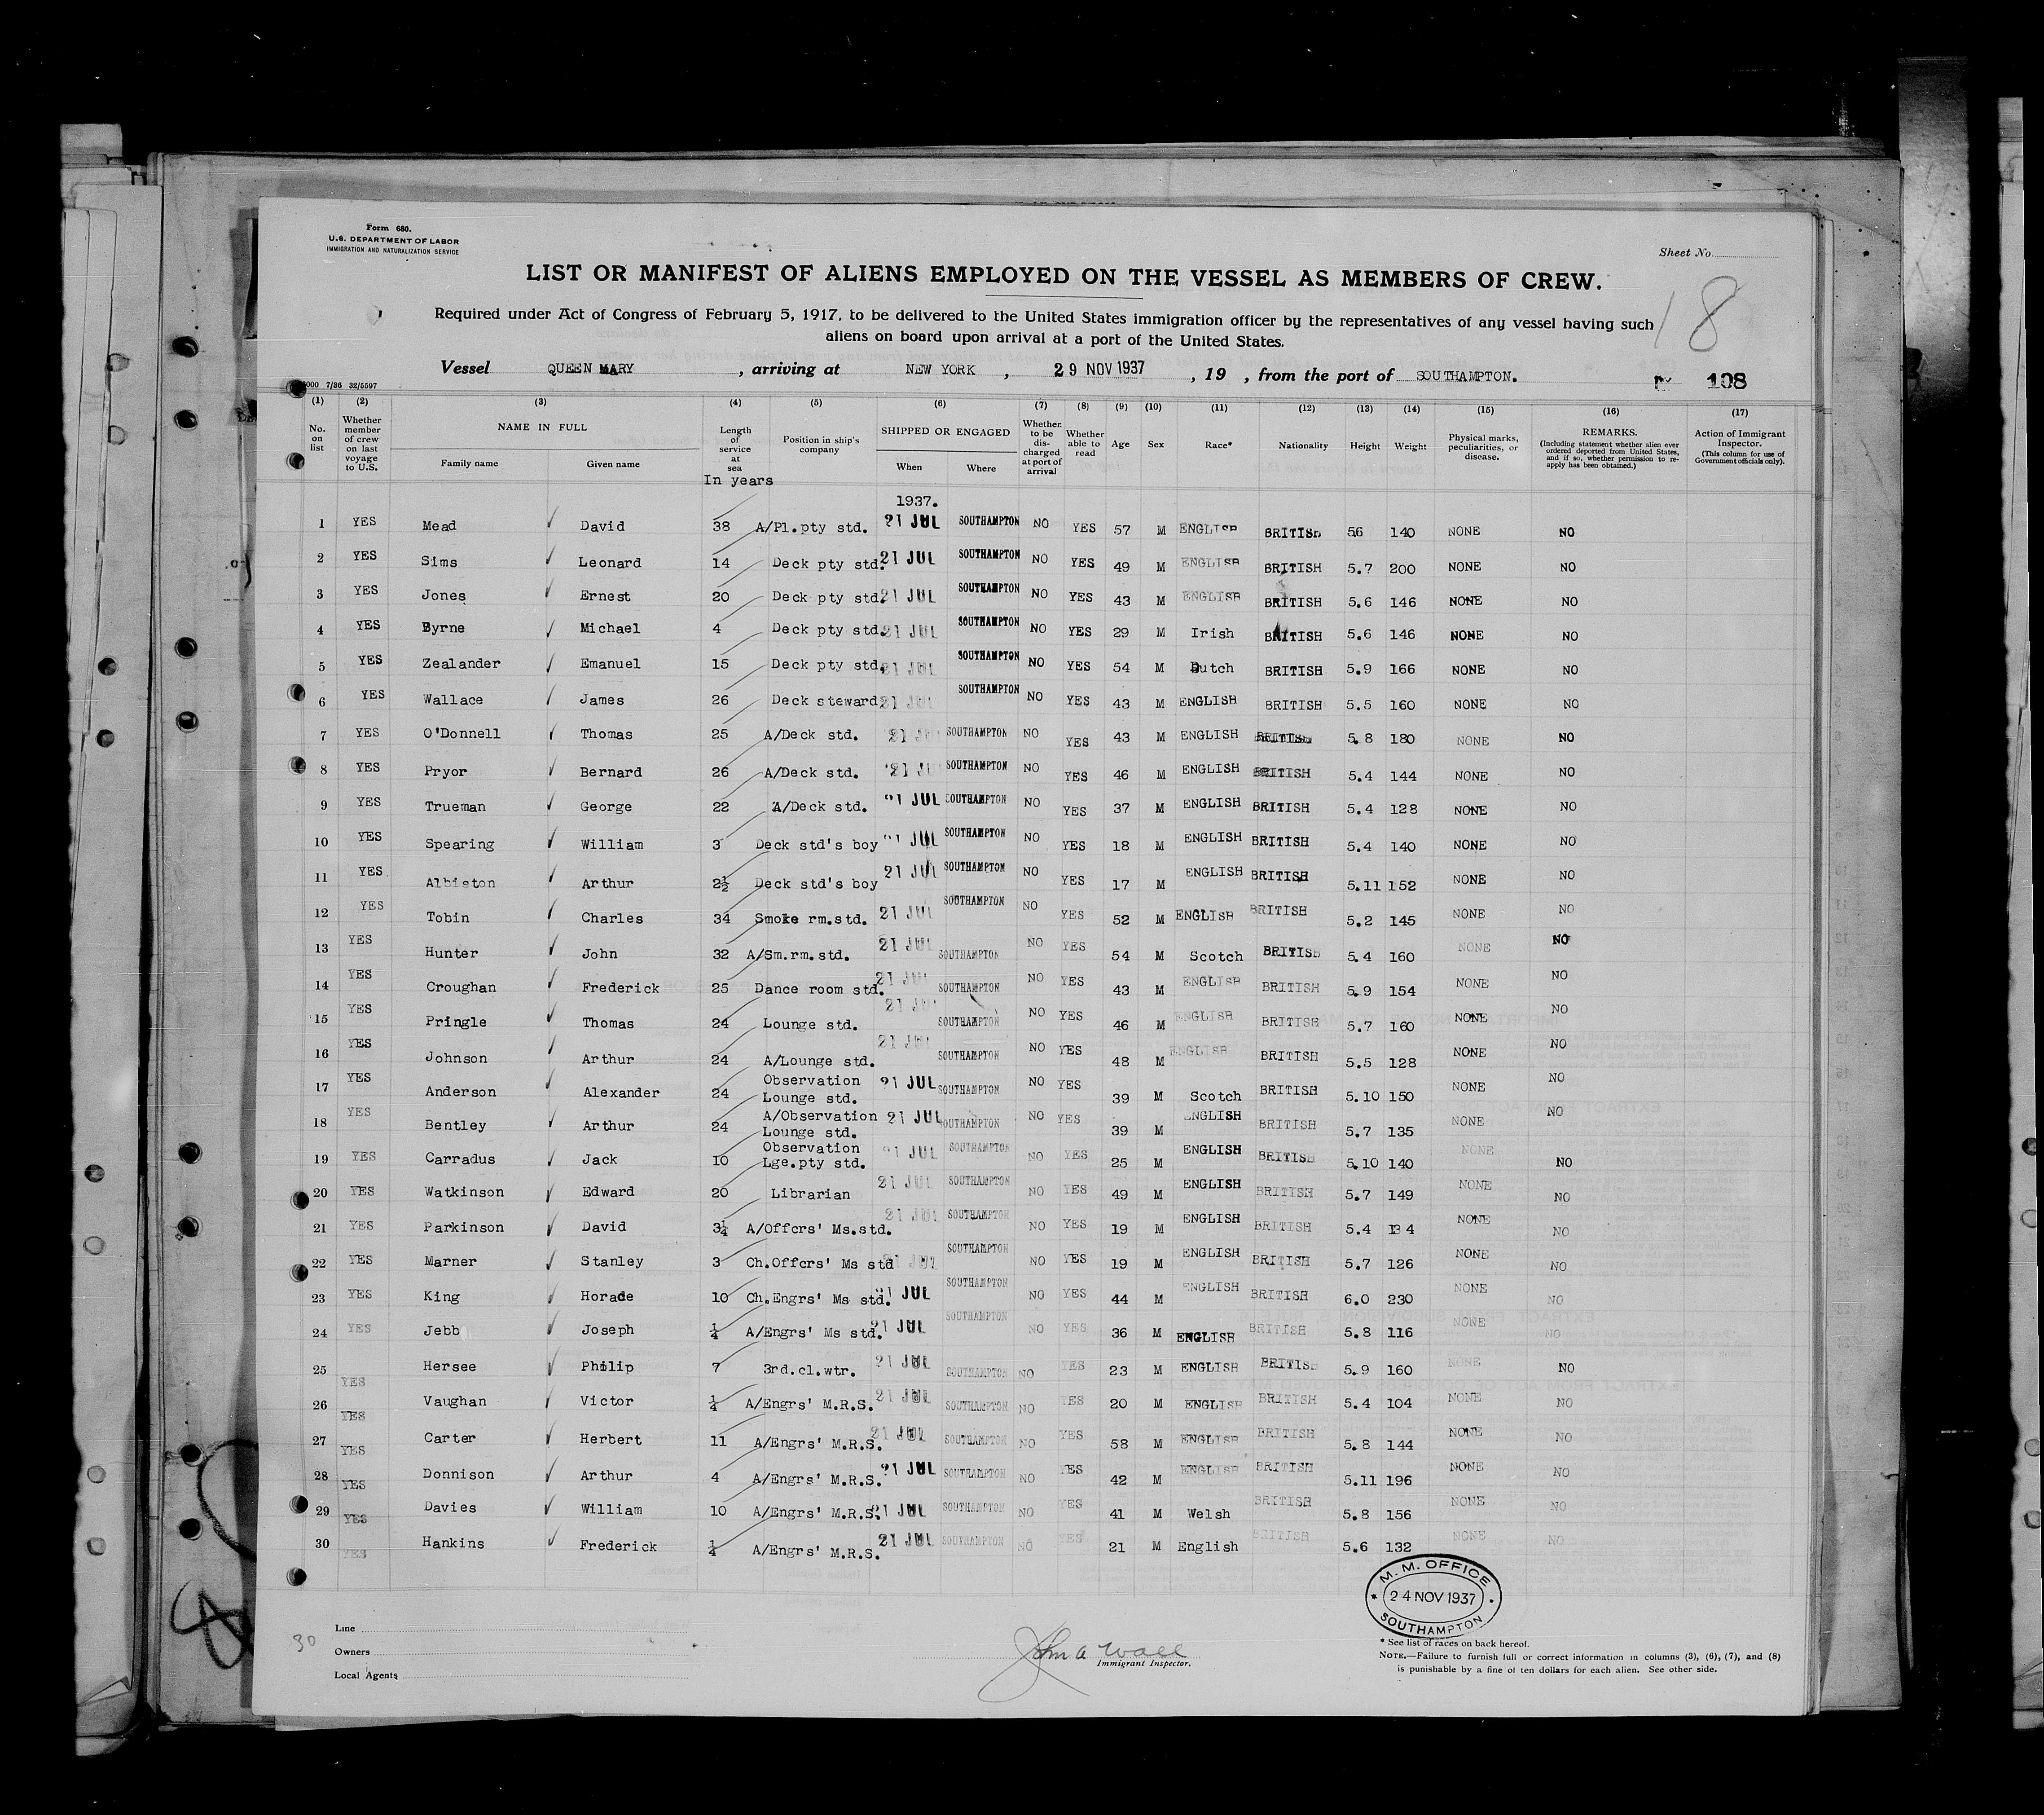 Form 680.
U.S. DEPARTMENT OF LABOR
IMMIGRATION AND NATURALIZATION SERVICE
Sheet No.
18
LIST OR MANIFEST OF ALIENS EMPLOYED ON THE VESSEL AS MEMBERS OF CREW.
Required under Act of Congress of February 5, 1917, to be delivered to the United States immigration officer by the representatives of any vessel having such
aliens on board upon arrival at a port of the United States.
Vessel QUEEN MARY , arriving at NEW YORK , 29 NOV 1937 , 19 , from the port of SOUTHAMPTON. 108
7/36 32/5597
(1) (2) (3) (4) (5) (6) (7) (8) (9) (10) (11) (12) (13) (14) (15) (16) (17)
No. on list Whether member of crew on last voyage to U.S. NAME IN FULL Family name Given name Length of service at sea In years Position in ship's company SHIPPED OR ENGAGED When Where Whether to be discharged at port of arrival Whether able to read Age Sex Race* Nationality Height Weight Physical marks, peculiarities, or disease. REMARKS. (Including statement whether alien ever ordered deported from United States, and if so, whether permission to re-apply has been obtained.) Action of Immigrant Inspector. (This column for use of Government officials only).
1937.
1 YES Mead David 38 A/Pl.pty std. 21 JUL SOUTHAMPTON NO YES 57 M ENGLISH BRITISH 56 140 NONE NO
2 YES Sims Leonard 14 Deck pty std. 21 JUL SOUTHAMPTON NO YES 49 M ENGLISH BRITISH 5.7 200 NONE NO
3 YES Jones Ernest 20 Deck pty std. 21 JUL SOUTHAMPTON NO YES 43 M ENGLISH BRITISH 5.6 146 NONE NO
4 YES Byrne Michael 4 Deck pty std. 21 JUL SOUTHAMPTON NO YES 29 M Irish BRITISH 5.6 146 NONE NO
5 YES Zealander Emanuel 15 Deck pty std. 21 JUL SOUTHAMPTON NO YES 54 M Dutch BRITISH 5.9 166 NONE NO
6 YES Wallace James 26 Deck steward 21 JUL SOUTHAMPTON NO YES 43 M ENGLISH BRITISH 5.5 160 NONE NO
7 YES O'Donnell Thomas 25 A/Deck std. 21 JUL SOUTHAMPTON NO YES 43 M ENGLISH BRITISH 5.8 180 NONE NO
8 YES Pryor Bernard 26 A/Deck std. 21 JUL SOUTHAMPTON NO YES 46 M ENGLISH BRITISH 5.4 144 NONE NO
9 YES Trueman George 22 A/Deck std. 21 JUL SOUTHAMPTON NO YES 37 M ENGLISH BRITISH 5.4 128 NONE NO
10 YES Spearing William 3 Deck std's boy 21 JUL SOUTHAMPTON NO YES 18 M ENGLISH BRITISH 5.4 140 NONE NO
11 YES Albiston Arthur 2½ Deck std's boy 21 JUL SOUTHAMPTON NO YES 17 M ENGLISH BRITISH 5.11 152 NONE NO
12 YES Tobin Charles 34 Smoke rm.std. 21 JUL SOUTHAMPTON NO YES 52 M ENGLISH BRITISH 5.2 145 NONE NO
13 YES Hunter John 32 A/Sm.rm.std. 21 JUL SOUTHAMPTON NO YES 54 M Scotch BRITISH 5.4 160 NONE NO
14 YES Croughan Frederick 25 Dance room std. 21 JUL SOUTHAMPTON NO YES 43 M ENGLISH BRITISH 5.9 154 NONE NO
15 YES Pringle Thomas 24 Lounge std. 21 JUL SOUTHAMPTON NO YES 46 M ENGLISH BRITISH 5.7 160 NONE NO
16 YES Johnson Arthur 24 A/Lounge std. 21 JUL SOUTHAMPTON NO YES 48 M ENGLISH BRITISH 5.5 128 NONE NO
17 YES Anderson Alexander 24 Observation Lounge std. 21 JUL SOUTHAMPTON NO YES 39 M Scotch BRITISH 5.10 150 NONE NO
18 YES Bentley Arthur 24 A/Observation Lounge std. 21 JUL SOUTHAMPTON NO YES 39 M ENGLISH BRITISH 5.7 135 NONE NO
19 YES Carradus Jack 10 Observation Lge.pty std. 21 JUL SOUTHAMPTON NO YES 25 M ENGLISH BRITISH 5.10 140 NONE NO
20 YES Watkinson Edward 20 Librarian 21 JUL SOUTHAMPTON NO YES 49 M ENGLISH BRITISH 5.7 149 NONE NO
21 YES Parkinson David 3¼ A/Offcrs' Ms.std. 21 JUL SOUTHAMPTON NO YES 19 M ENGLISH BRITISH 5.4 134 NONE NO
22 YES Marner Stanley 3 Ch.Offcrs' Ms std 21 JUL SOUTHAMPTON NO YES 19 M ENGLISH BRITISH 5.7 126 NONE NO
23 YES King Horade 10 Ch.Engrs' Ms std. 21 JUL SOUTHAMPTON NO YES 44 M ENGLISH BRITISH 6.0 230 NONE NO
24 YES Jebb Joseph ¼ A/Engrs' Ms std. 21 JUL SOUTHAMPTON NO YES 36 M ENGLISH BRITISH 5.8 116 NONE NO
25 YES Hersee Philip 7 3rd.cl.wtr. 21 JUL SOUTHAMPTON NO YES 23 M ENGLISH BRITISH 5.9 160 NONE NO
26 YES Vaughan Victor ¼ A/Engrs' M.R.S. 21 JUL SOUTHAMPTON NO YES 20 M ENGLISH BRITISH 5.4 104 NONE NO
27 YES Carter Herbert 11 A/Engrs' M.R.S. 21 JUL SOUTHAMPTON NO YES 58 M ENGLISH BRITISH 5.8 144 NONE NO
28 YES Donnison Arthur 4 A/Engrs' M.R.S. 21 JUL SOUTHAMPTON NO YES 42 M ENGLISH BRITISH 5.11 196 NONE NO
29 YES Davies William 10 A/Engrs' M.R.S. 21 JUL SOUTHAMPTON NO YES 41 M Welsh BRITISH 5.8 156 NONE NO
30 YES Hankins Frederick ¼ A/Engrs' M.R.S. 21 JUL SOUTHAMPTON NO YES 21 M English BRITISH 5.6 132 NONE NO
M. M. OFFICE
24 NOV 1937
SOUTHAMPTON
30
Line
Owners
Local Agents
John A Wall
Immigrant Inspector.
* See list of races on back hereof.
NOTE.—Failure to furnish full or correct information in columns (3), (6), (7), and (8)
is punishable by a fine of ten dollars for each alien. See other side.